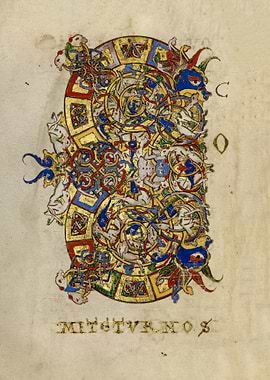 C
O
MITETVR NOS